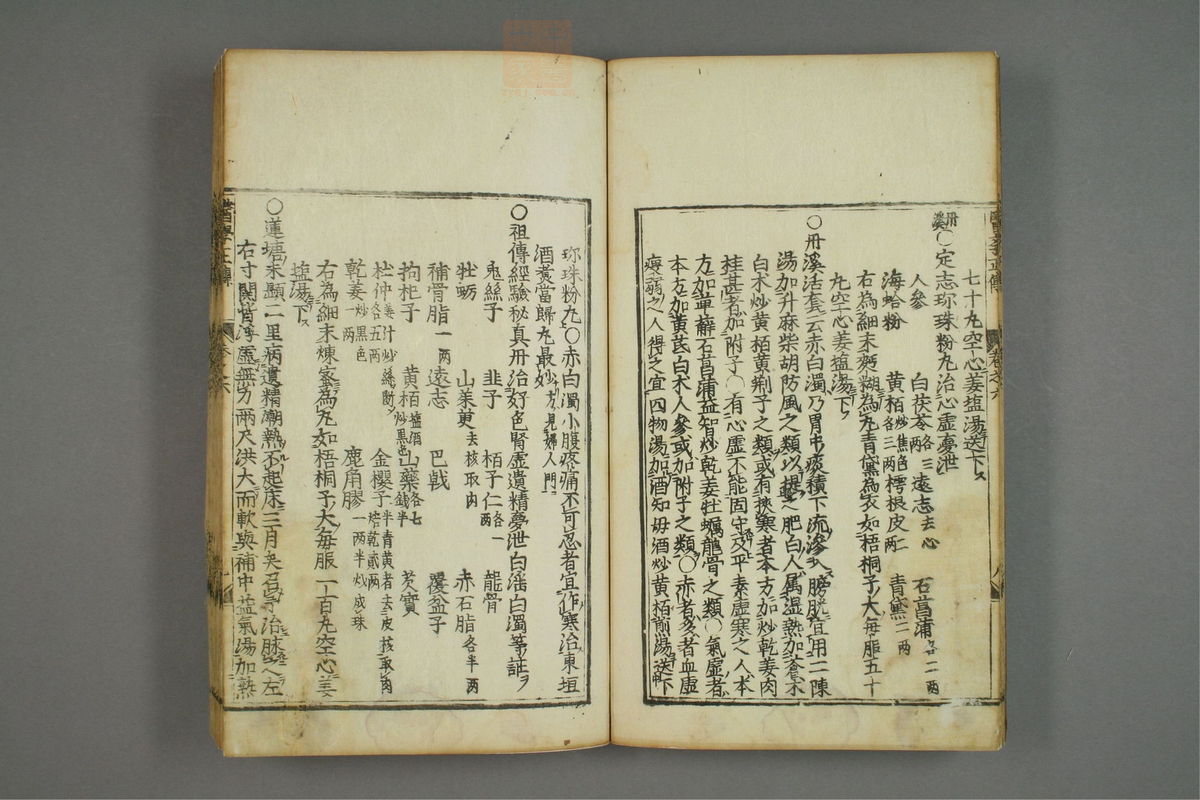 七十丸空心姜塩湯送下ス
丹溪○定志珎珠粉丸治心虚夢泄
人參 白茯苓各三兩 遠志去心 石菖蒲各二兩
海蛤粉 黄栢炒焦色各三兩 樗根皮一兩 青黛二兩
右為細末麪糊為丸青黛為衣如梧桐子大每服五十
丸空心姜塩湯下ス
○丹溪活套云赤白濁乃胃中痰積下流滲入膀胱宜用二陳
湯加升麻柴胡防風之類以提之肥白人属湿熱加蒼朮
白朮炒黄栢黄荊子之類或有挾寒者本方加炒乾姜肉
桂甚者加附子○有心虚不能固守及平素虚寒之人本
方加萆薢石菖蒲益智炒乾姜牡蠣龍骨之類○氣虚者
本方加黄芪白朮人參或加附子之類○赤者多者血虚
瘦弱之人得之宜四物湯加酒知毋酒炒黄栢煎湯送下
珎珠粉丸○赤白濁小腹疼痛不可忍者宜作寒治東垣
酒煮當歸丸最妙方見婦人門
○祖傳經驗秘真丹治好色腎虚遺精夢泄白淫白濁等証ヲ
兎絲子 韭子 栢子仁各一兩 龍骨
牡蛎 山茱萸去核取肉 赤石脂各半兩
補骨脂一兩 遠志 巴戟 覆盆子
拘杞子 黄栢塩酒炒黒色 山藥各七錢半 芡實
杜仲姜汁炒絲断各五兩 金櫻子半青黄者去皮核取肉焙乾貳兩
乾姜炒黒色一兩 鹿角膠一兩半炒成珠
右為細末煉蜜為丸如梧桐子大每服一百丸空心姜
塩湯下ス
○蓮塘朱顯二里病遺精潮熱不起床三月矣召予治脉之左
右寸関皆浮虚無力兩尺洪大而軟與補中益氣湯加熟